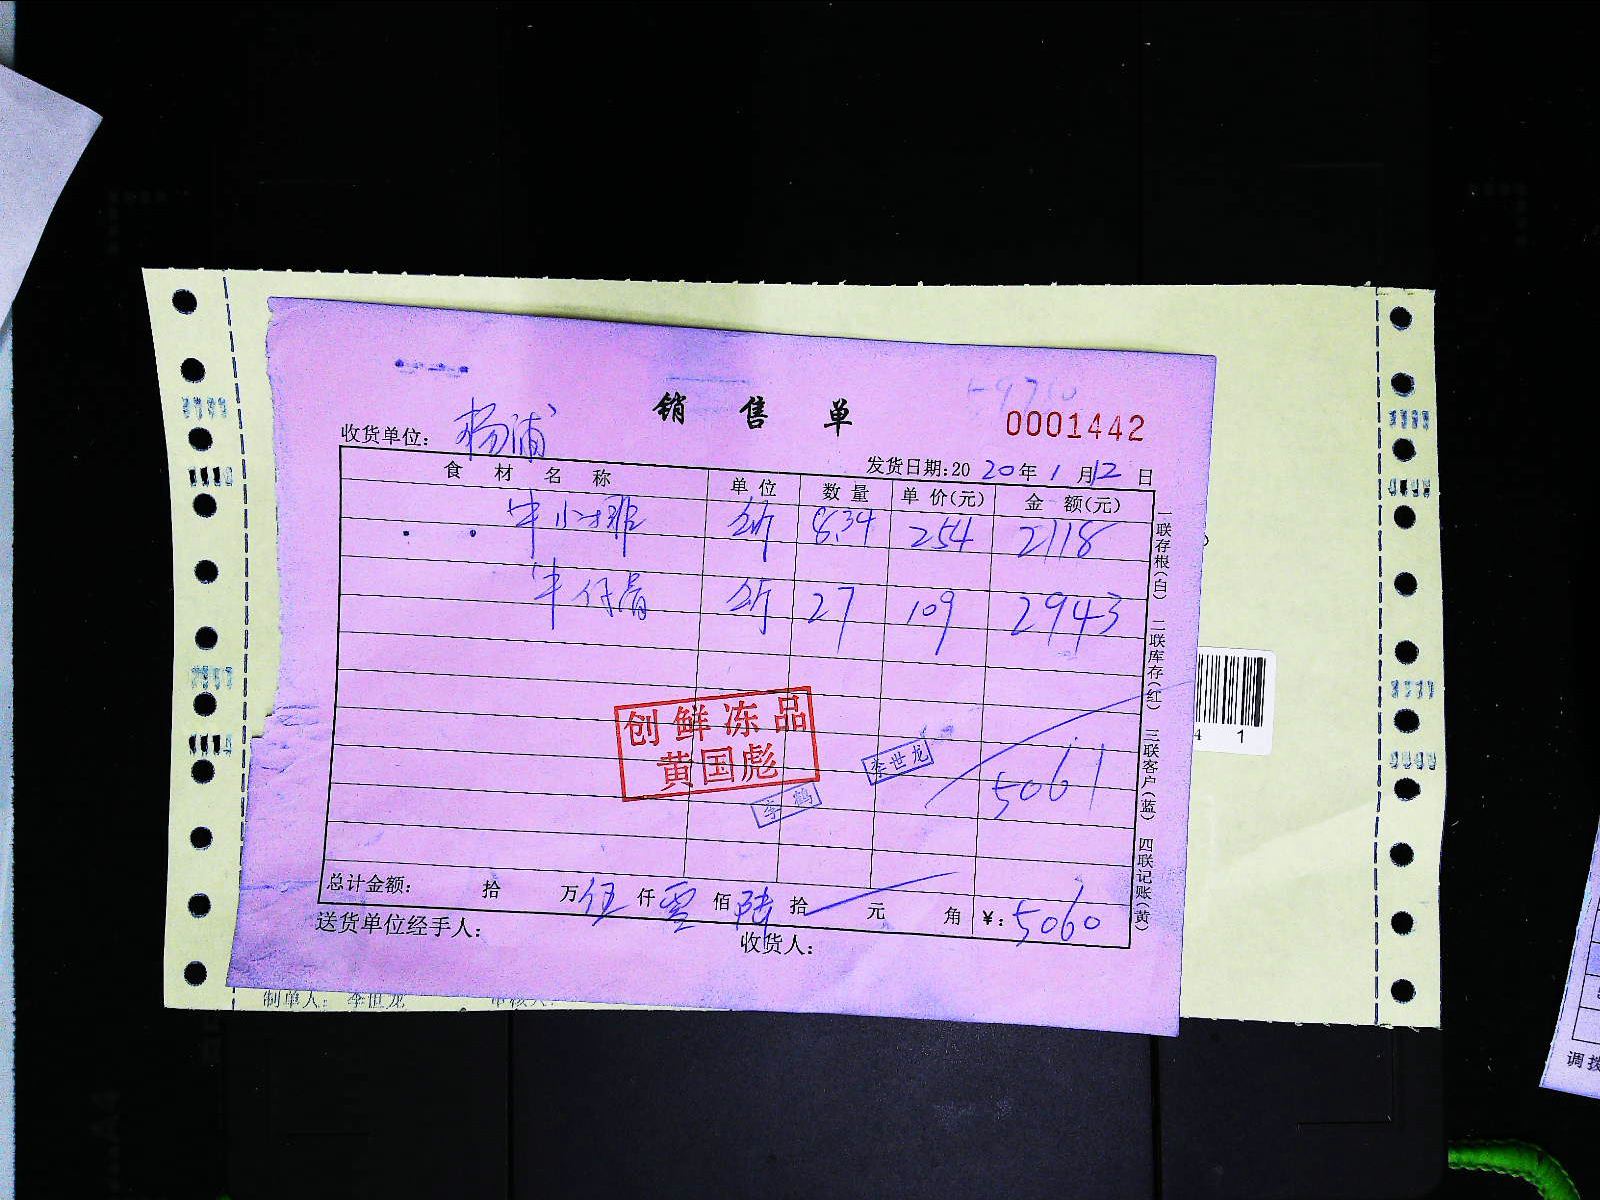 销售单
0001442
收货单位：杨浦
发货日期:2020年1月12日
食材名称 单位 数量 单价(元) 金额(元)
牛小排 斤 8.34 254 2118
牛仔骨 斤 27 109 2943
创鲜冻品
黄国彪
李世龙
李鹤
5061
总计金额： 拾 万伍仟零佰陆拾 元 角 ￥：5060
送货单位经手人： 收货人：
一联存根(白) 二联库存(红) 三联客户(蓝) 四联记账(黄)
4 1
制单人： 李世龙
调拨